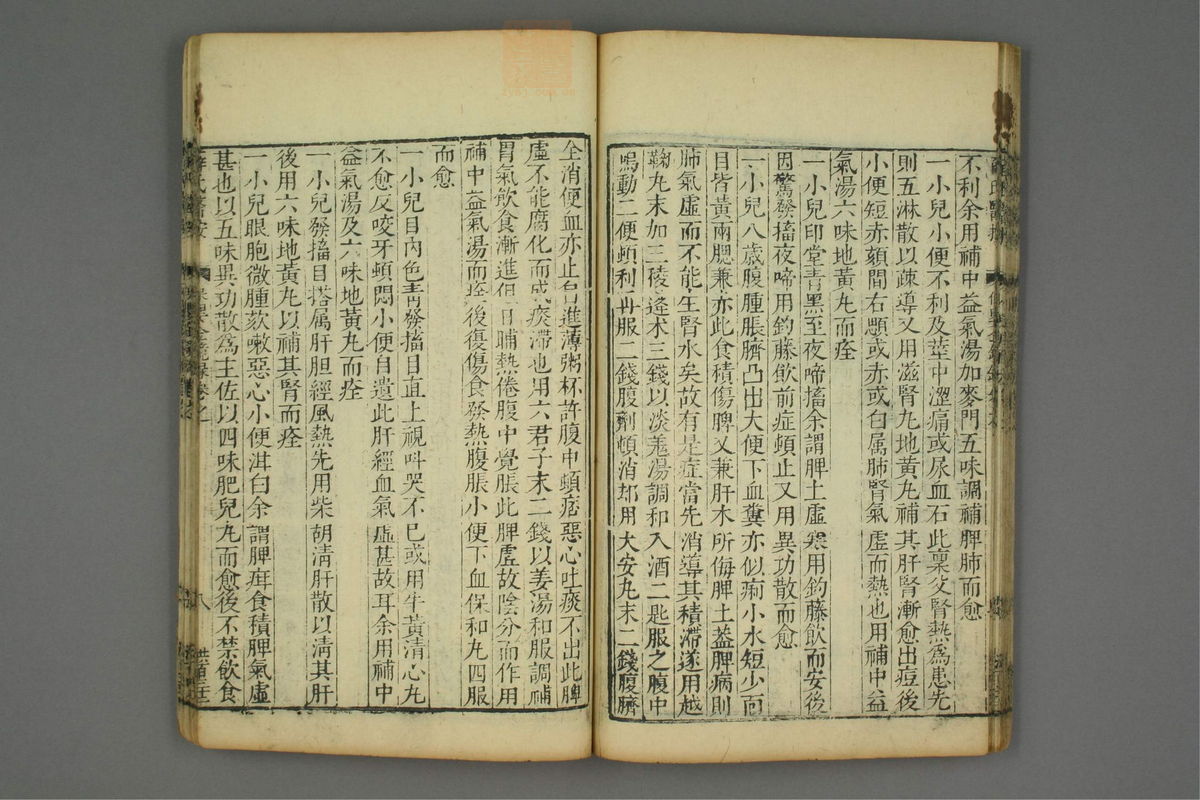 不利余用補中益氣湯加麥門五味調補脾肺而愈
一小兒小便不利及莖中澀痛或尿血石此稟父腎熱為患先
則五淋散以疎導又用滋腎丸地黃丸補其肝腎漸愈出痘後
小便短赤頦間右顋或赤或白属肺腎氣虛而熱也用補中益
氣湯六味地黃丸而痊
一小兒印堂青黑至夜啼搐余謂脾土虛寒用釣藤飲而安後
因驚發搐夜啼用釣藤飲前症頓止又用異功散而愈
一小兒八歲腹腫脹臍凸出大便下血糞亦似痢小水短少面
目皆黃兩腮兼赤此食積傷脾又兼肝木所侮脾土蓋脾病則
肺氣虛而不能生腎水矣故有是症當先消導其積滯遂用越
鞠丸末加三稜蓬术三錢以淡羗湯調和入酒二匙服之腹中
鳴動二便頓利再服二錢腹劑頓消却用大安丸末二錢腹臍
全消便血亦止台進薄粥杯許腹中頓痞惡心吐痰不出此脾
虛不能腐化而成痰滯也用六君子末二錢以姜湯和服調補
胃氣飲食漸進但日晡熱倦腹中覺脹此脾虛故陰分而作用
補中益氣湯而痊後復傷食發熱腹脹小便下血保和丸四服
而愈
一小兒目內色青發搐目直上視呌哭不巳或用牛黃清心丸
不愈反咬牙頓悶小便自遺此肝經血氣虛甚故耳余用補中
益氣湯及六味地黃丸而痊
一小兒發搐目搭属肝胆經風熱先用柴胡清肝散以清其肝
後用六味地黃丸以補其腎而痊
一小兒眼胞微腫欬嗽惡心小便泔白余謂脾疳食積脾氣虛
甚也以五味異功散為主佐以四味肥兒丸而愈後不禁飲食
薛氏醫按
八